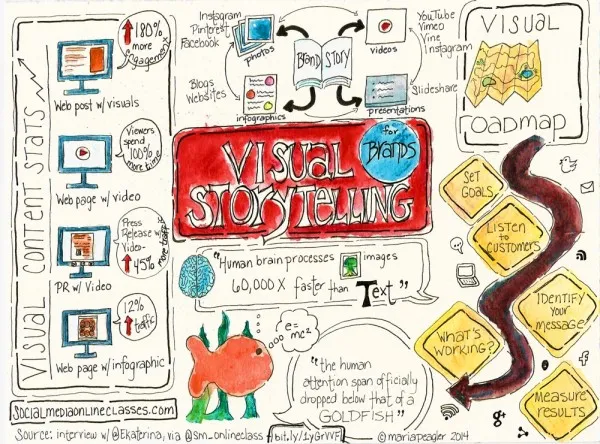 VISUAL CONTENT STATS
180%
more
engagement
Web post w/ visuals
Viewers
spend
100%
more time
Web page w/ video
Press
Release w/
Video-
45%
more traffic
PR w/ Video
12%
traffic
Web page w/ infographic
Socialmediaonlineclasses.com
Source: interview w/ @Ekaterina, via @sm_onlineclass
bit.ly/1yGrVVF
© mariapeagler 2014
Instagram
Pinterest
Facebook
photos
Blogs
Websites
infographics
BRAND STORY
videos
YouTube
Vimeo
Vine
Instagram
presentations
Slideshare
VISUAL
STORYTELLING
for
BRANDS
"Human brain processes images
60,000 X faster than Text"
e=
mc²
"the human
attention span officially
dropped below that of a
GOLDFISH"
VISUAL
ROADMAP
SET
GOALS
LISTEN
to
CUSTOMERS
IDENTIFY
YOUR
MESSAGE
WHAT'S
WORKING?
MEASURE
RESULTS
f
g+